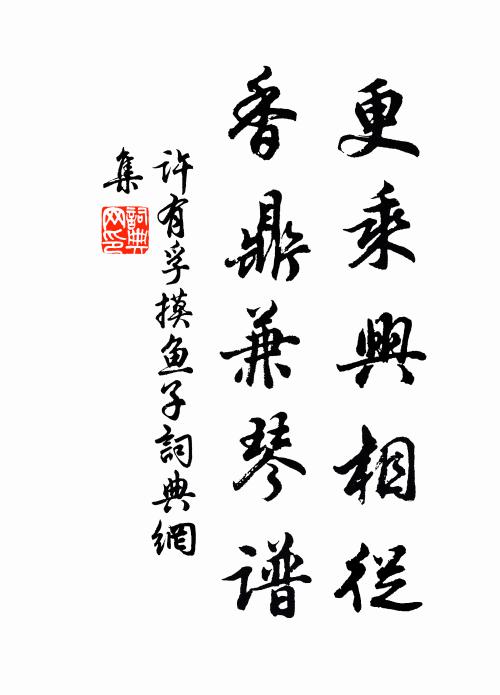 更乘興相從
香鼎兼琴譜
許有孚摸魚子詞典網
集
詞典
网印